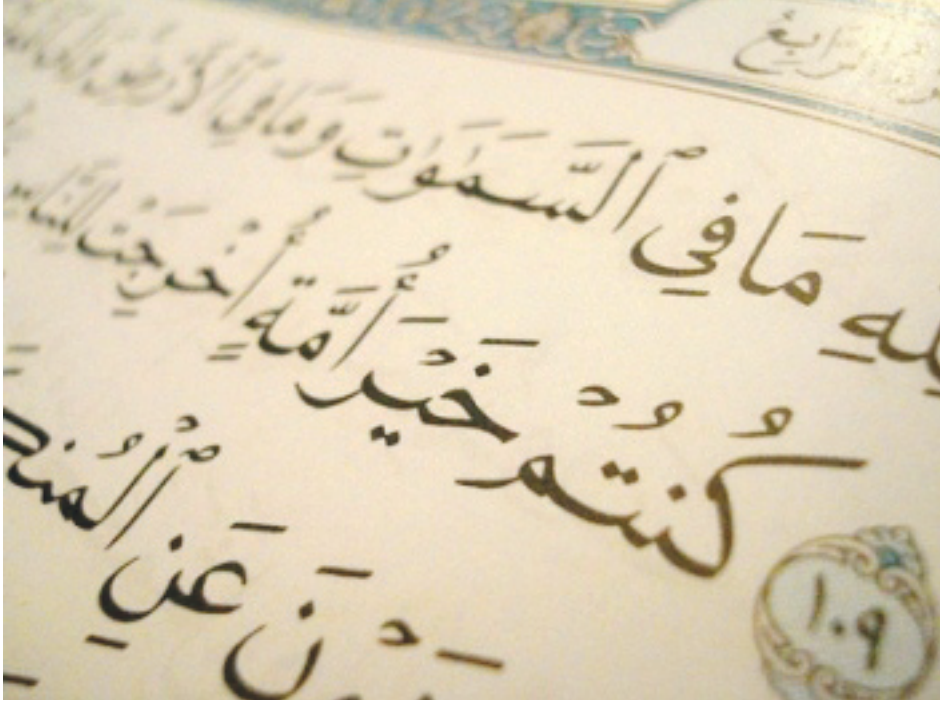 الرَّابِعُ
لِلَّهِ مَا فِي ٱلسَّمَـٰوَٰتِ وَمَا فِي ٱلْأَرْضِ
١٠٩ كُنتُمْ خَيْرَ أُمَّةٍ أُخْرِجَتْ لِلنَّاسِ
وْنَ عَنِ ٱلْمُنكَ